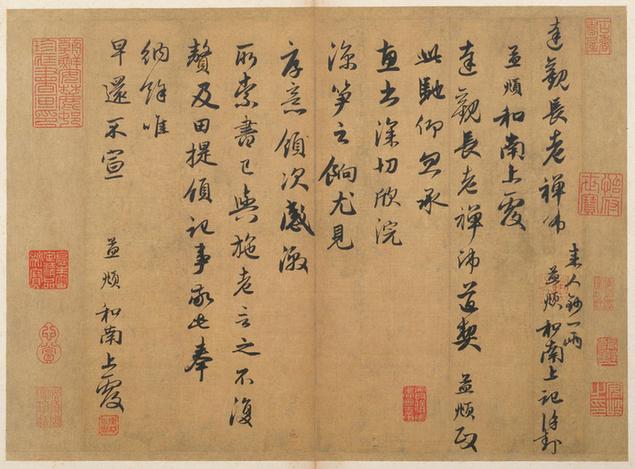 達觀長老禪師
來人鈔一兩
孟頫和南上記謹封
孟頫和南上覆
達觀長老禪師道契 孟頫政
此馳仰忽承
惠書深切欣浣
筍之餉尤見
厚意領次感激
所索書已與施老言之不復
贅及田提領記事敬此奉
納餘唯
早還不宣 孟頫和南上覆